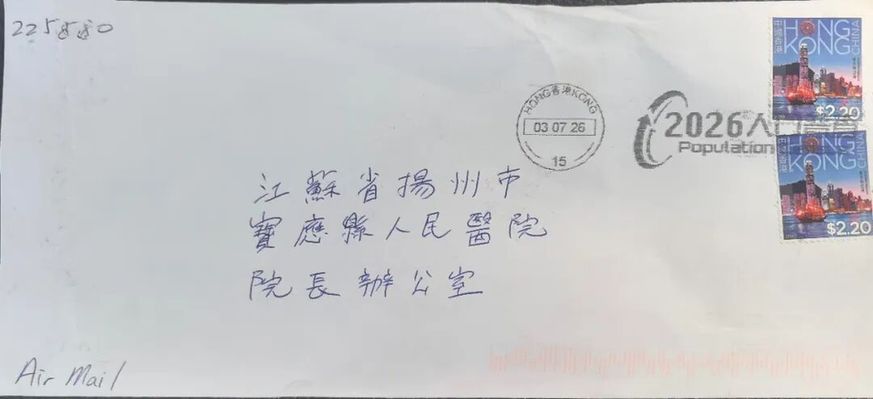 225880
HONG KONG
中國香港
CHINA
$2.20
HONG香港KONG
03 07 26
15
2026人口普查
Population
HONG KONG
中國香港
CHINA
$2.20
江蘇省揚州市
寶應縣人民醫院
院長辦公室
Air Mail